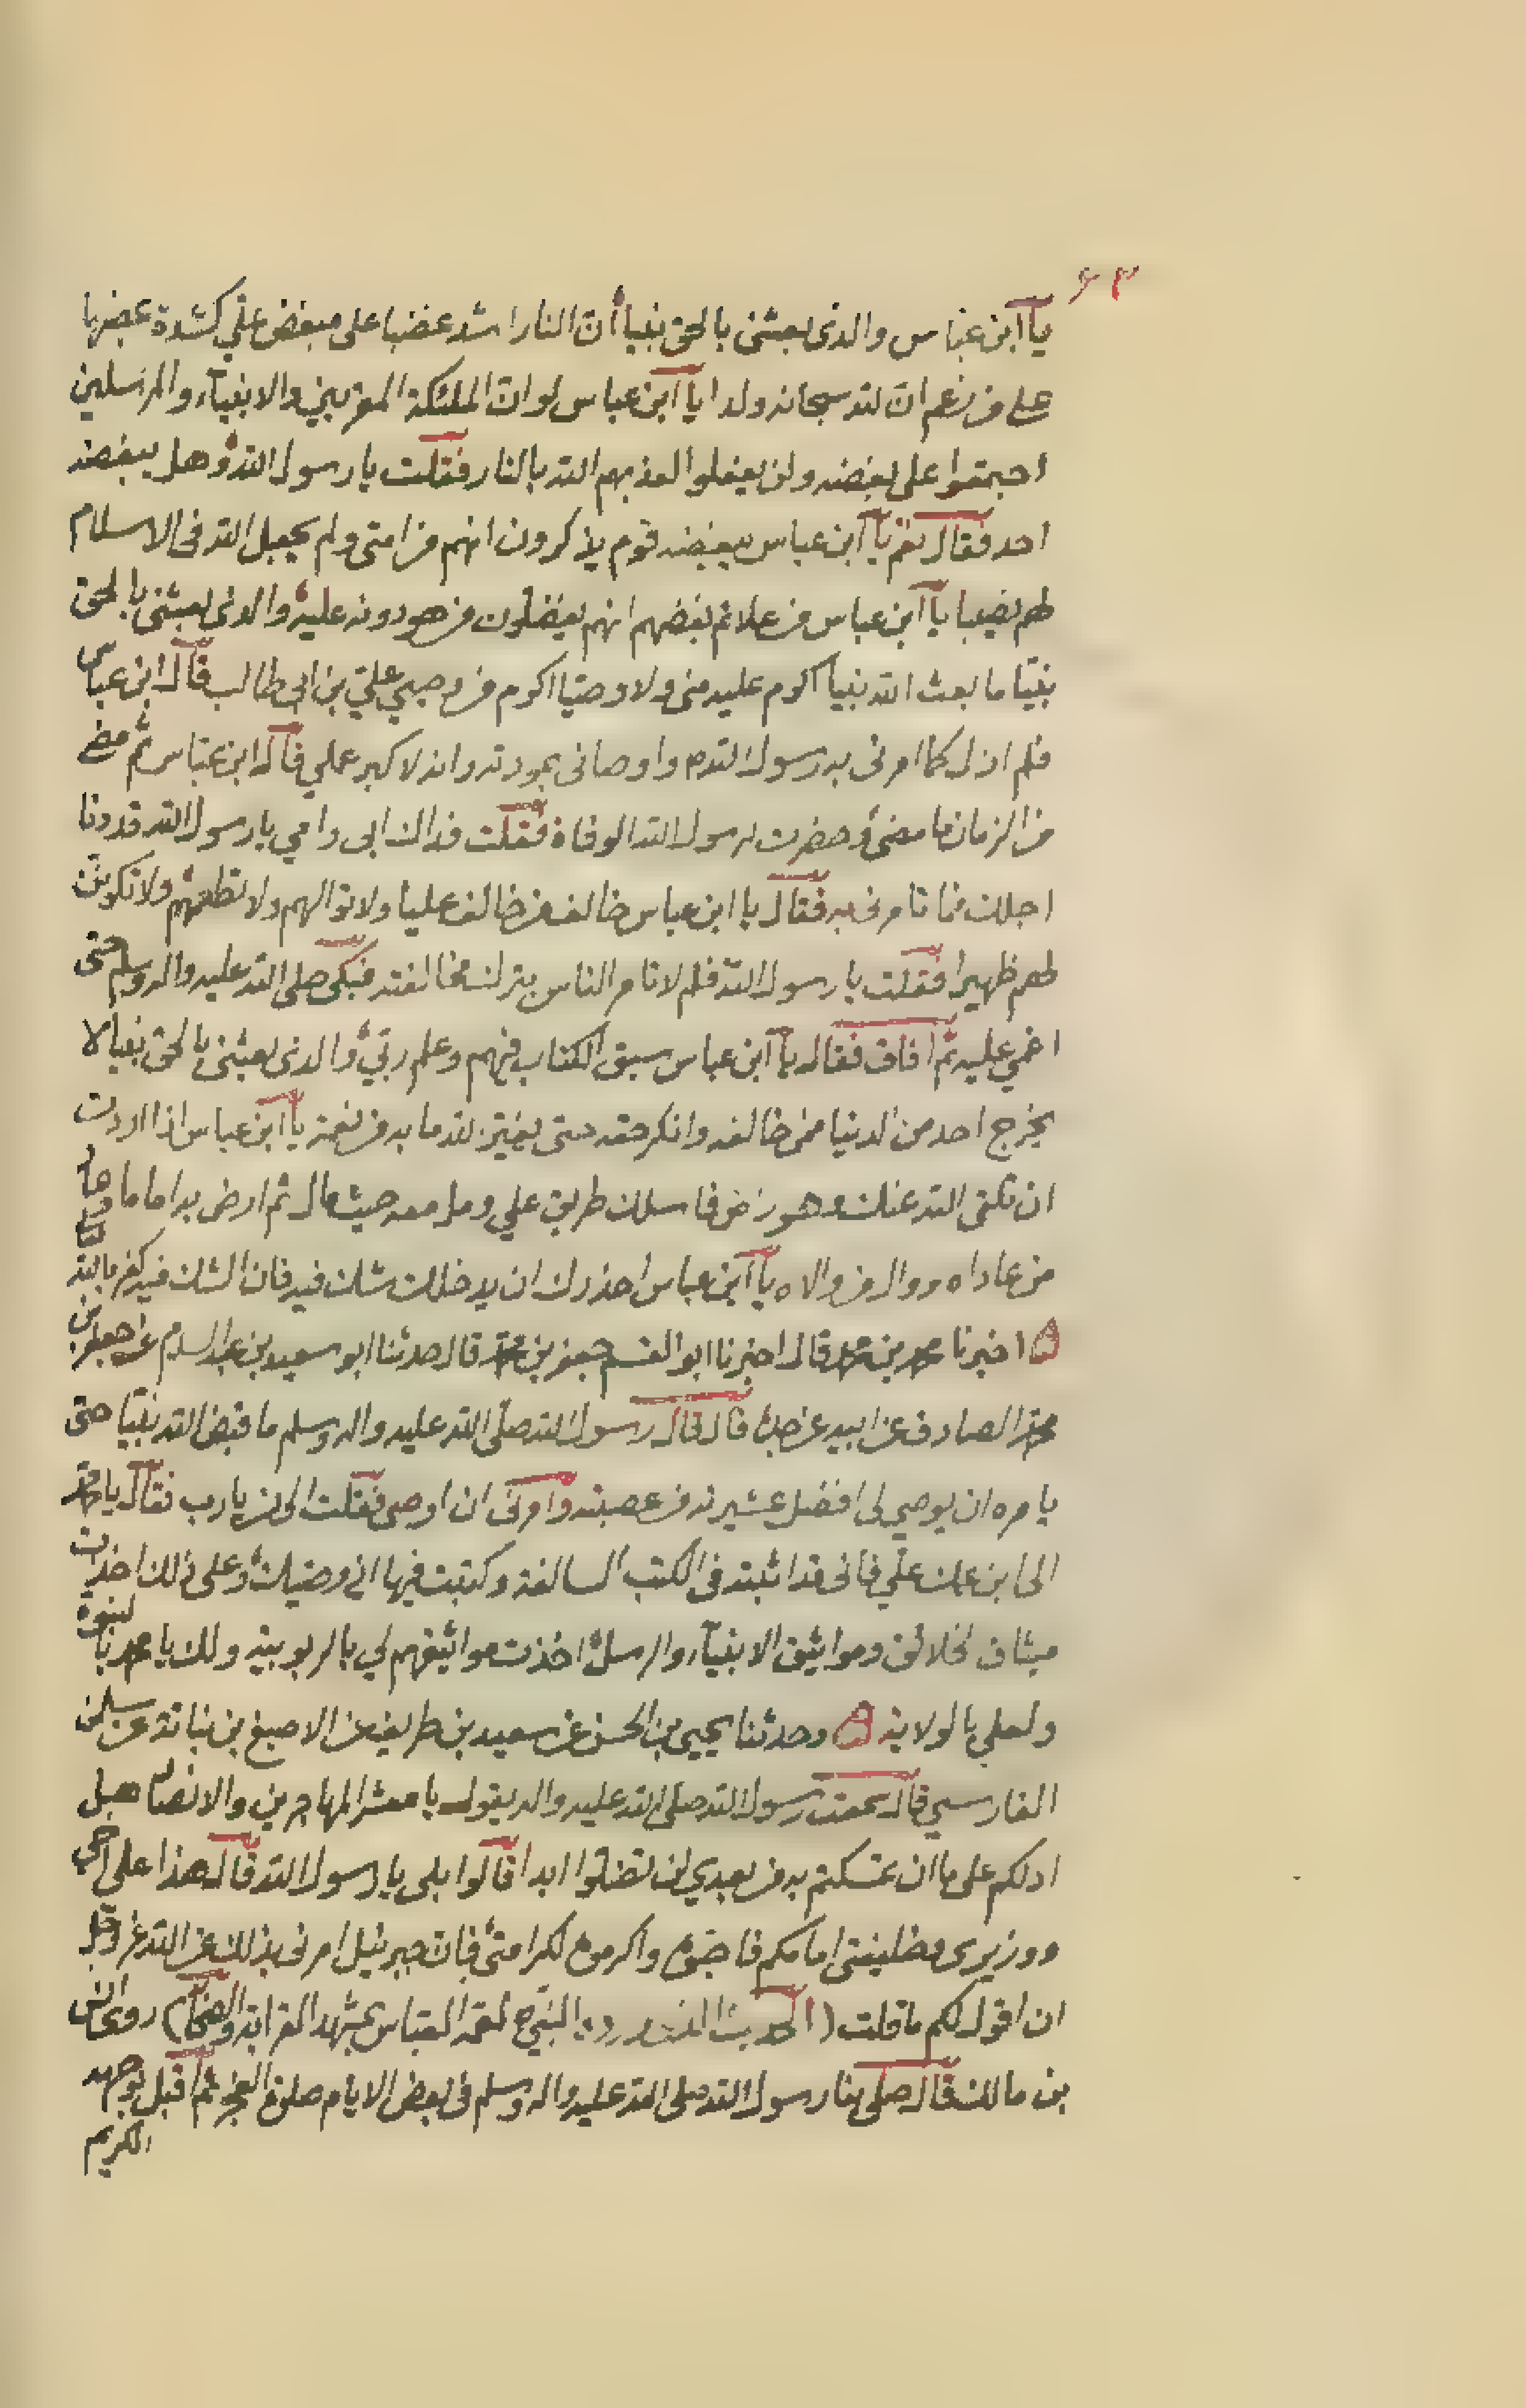 ۶۳
يا ابن عباس والذي بعثني بالحق نبيا أن النار اشد غضبا على مبغض علي كشدة غضبها
على من زعم ان لله سبحانه ولدا يا ابن عباس لو ان الملئكة المقربين والانبياء والمرسلين
اجتمعوا على بغضه ولن يفعلوا لعذبهم الله بالنار فقلت يا رسول الله وهل يبغضه
احد فقال نعم يا ابن عباس يبغضه قوم يذكرون انهم من امتي ولم يجعل الله في الاسلام
لهم نصيبا يا ابن عباس من علائم بغضهم انهم يفضلون من هو دونه عليه والذي بعثني بالحق
نبيّا ما بعث الله نبيا اكرم عليه مني ولا وصيّا اكرم من وصيي علي بن ابي طالب قال ابن عباس
فلم ازل كما امرني به رسول الله واوصاني بمودته وانه لاكبر عملي قال ابن عباس ثم مضى
من الزمان ما مضى وحضرت رسول الله الوفاة فقلت فداك ابي وامي يا رسول الله قد دنا
اجلك فما تامرني به فقال يا ابن عباس خالف من خالف عليا ولا توالهم ولا تكونن
لهم ظهيرا فقلت يا رسول الله فلم لا تامر الناس بترك مخالفته فبكى صلى الله عليه واله وسلم حتى
اغمي عليه ثم افاق فقال يا ابن عباس سبق الكتاب فيهم وعلم ربي والذي بعثني بالحق نبيا لا
يخرج احد من الدنيا ممن خالفه وانكر حقه حتى يغير الله ما به من نعمة يا ابن عباس اذا اردت
ان تلقى الله عنك وهو راض فاسلك طريق علي ومل معه حيث مال ثم ارض به اماما وعاد
من عاداه ووال من والاه يا ابن عباس احذرك ان يدخلك شك فيه فان الشك فيه كفر بالله
اخبرنا محمد بن محمد قال اخبرنا ابو القسم جعفر بن محمد قال حدثنا ابو سعيد بن عبد السلام عن جعفر بن
محمد الصادق عن ابيه عن جده قال قال رسول الله صلى الله عليه واله وسلم ما قبض الله نبيّا حتى
يامره ان يوصي الى افضل عشيرته من عصبته وامرني ان اوصي فقلت الى من يا رب فقال يا محمد
الى ابن عمك علي فاني قد اثبته في الكتب السالفة وكتبت فيها انه وصيك وعلى ذلك اخذت
ميثاق الخلائق ومواثيق الانبياء والرسل اخذت مواثيقهم لي بالربوبية ولك يا محمد بالنبوة
ولعلي بالولاية وحدثنا يحيى بن الحسن عن سعيد بن طريف عن الاصبغ بن نباتة عن سلمن
الفارسي قال سمعت رسول الله صلى الله عليه واله يقول يا معشر المهاجرين والانصار هل
ادلكم على ما ان تمسكتم به من بعدي لن تضلوا ابدا قالوا بلى يا رسول الله قال هذا علي اخي
ووزيري وخليفتي امامكم فاحبوه واكرموه لكرامتي فان جبرئيل امرني بذلك عن الله عز وجل
ان اقول لكم ما قلت (الحديث النبي لعمه العباس بمشهد القرابة والصحابة) روى انس
بن مالك قال صلى بنا رسول الله صلى الله عليه واله وسلم في بعض الايام صلوة الفجر ثم اقبل بوجهه
الكريم